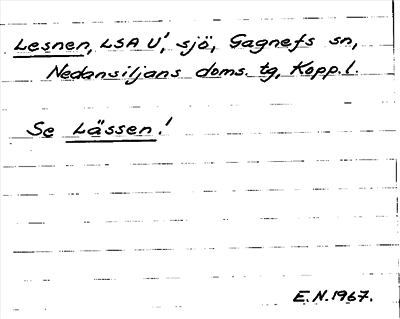 Lesnen, LSA U', sjö, Gagnefs sn,
Nedansiljans doms. tg, Kopp. l.
Se Lässen!
E.N. 1967.